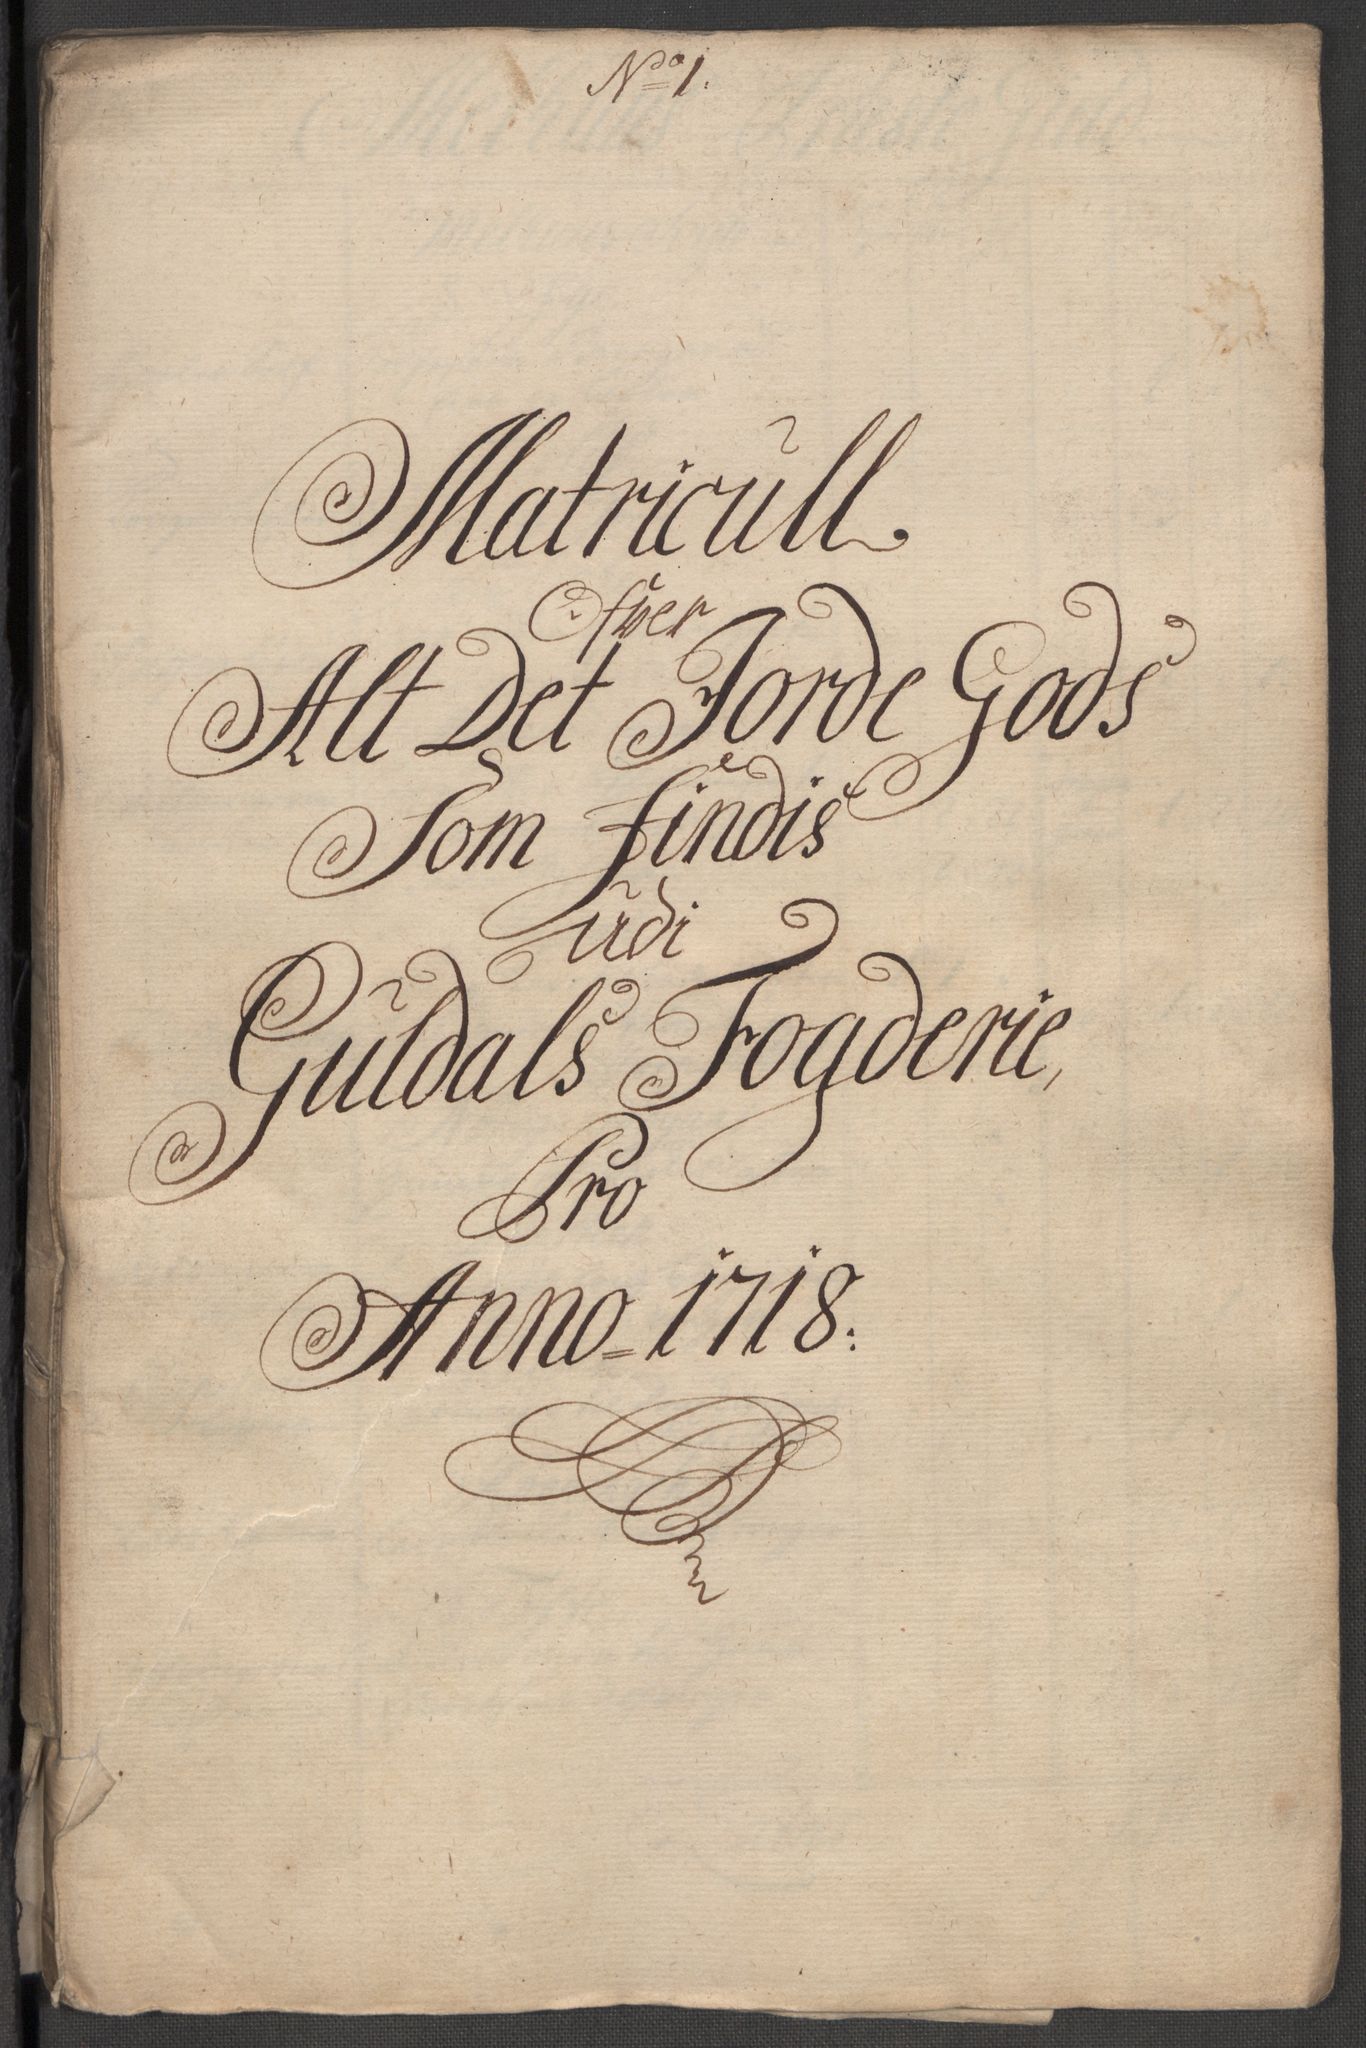 Ndo 1.
Matricull
Ofver
Alt Det Jorde Gods
Som findis
udi
Guldals Fogderie,
Pro
Anno 1718.